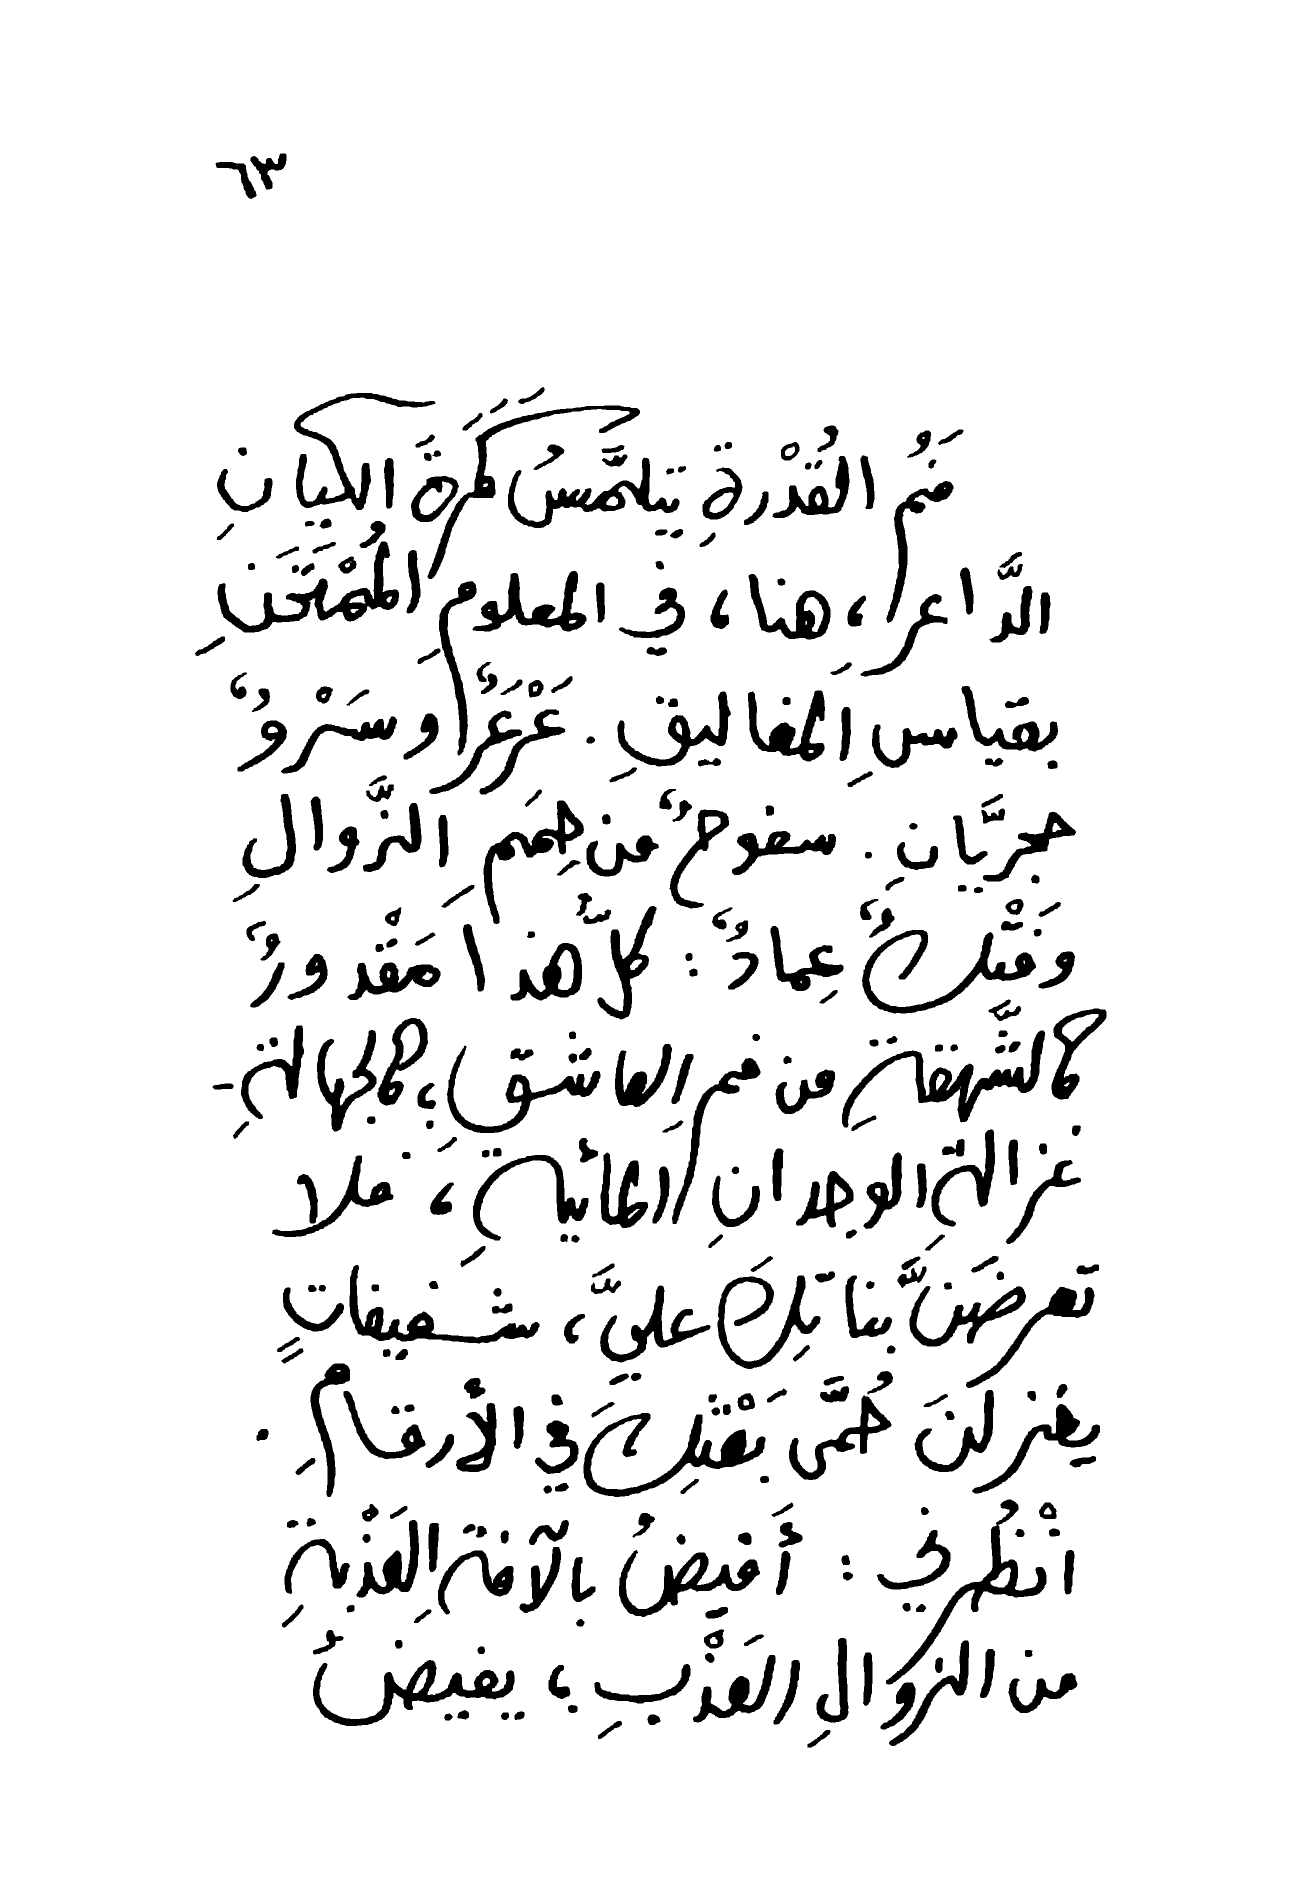 ٦٣
فَمُ القُدْرةِ يتلمَّسُ كَمَرَةَ الكيانِ
الدَّاعرِ، هنا، في المعلومِ المُمْتَحَنِ
بقياسِ المغاليقِ. عَرْعَرٌ و سَرْوٌ
حجريَّانِ. سفوحٌ من حِمَمِ الزَّوالِ
وَفَتْكٌ عِمادٌ: كلُّ هذا مَقْدورٌ
كالشَّهقةِ من فمِ العاشقِ؛ كالجهالةِ -
غزالةِ الوجدانِ المائيةِ، فلا
تعرضَنَّ بناتِكَ عليَّ، شفيفاتٍ
يغزلنَ حُمَّى بَعْثِكَ في الأرقامِ.
انْظُرني: أَفيضُ بالآفةِ العَذْبةِ
من الزوالِ العَذْبِ؛ يفيضُ